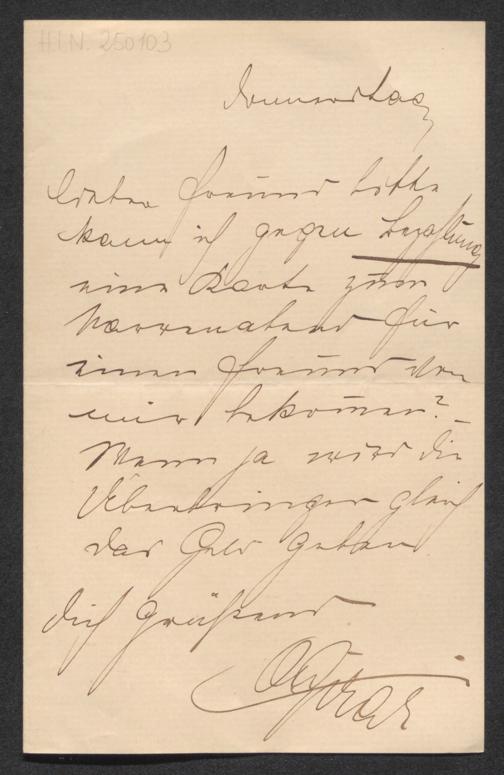 H.I.N. 250103
Donnerstag
Lieber Freund bitte
kann ich gegen Bezahlung
eine Karte zum
Narrenabend für
einen Freund von
mir bekom̄en?
Wenn ja wird die
Überbringer gleich
das Geld geben
Dich grüßend